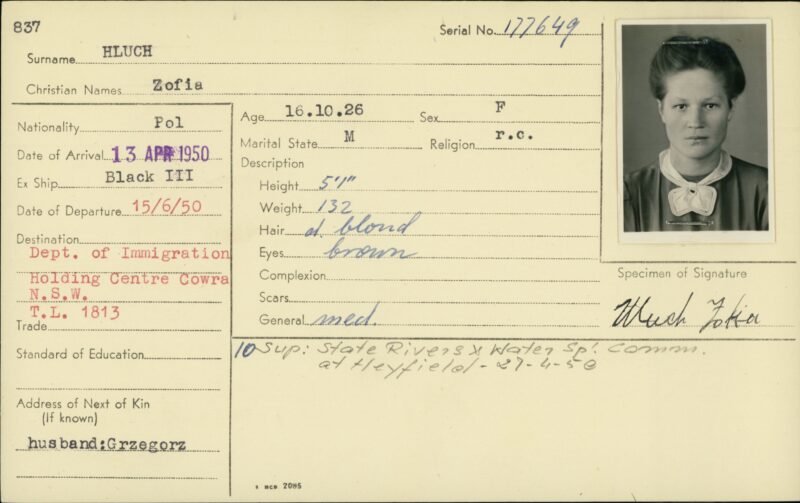 837
Serial No. 177649
Surname HLUCH
Christian Names Zofia
Nationality Pol
Date of Arrival 13 APR 1950
Ex Ship Black III
Date of Departure 15/6/50
Destination
Dept. of Immigration
Holding Centre Cowra
N.S.W.
T.L. 1813
Trade
Standard of Education
Address of Next of Kin
(If known)
husband:Grzegorz
Age 16.10.26 Sex F
Marital State M Religion r.c.
Description
Height 5'1"
Weight 132
Hair d. blond
Eyes brown
Complexion
Scars
General med.
Specimen of Signature
Hluch Zofia
10 Sup: State Rivers & Water Sp'. Comm.
at Heyfield - 27-4-50
2085